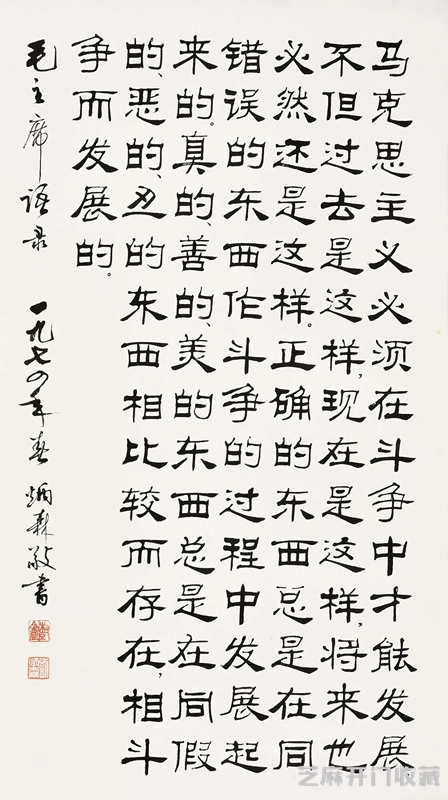 马克思主义必须在斗争中才能发展,
不但过去是这样,现在是这样,将来也
必然还是这样。正确的东西总是在同
错误的东西作斗争的过程中发展起
来的。真的、善的、美的东西总是在同假
的、恶的、丑的东西相比较而存在,相斗
争而发展的。
毛主席语录 一九七四年春 炳森敬书
芝麻开门收藏